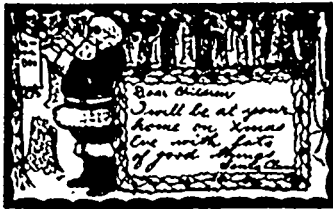 Dear Children
I will be at your
home on Xmas
Eve with lots
of good things
Santa Cl